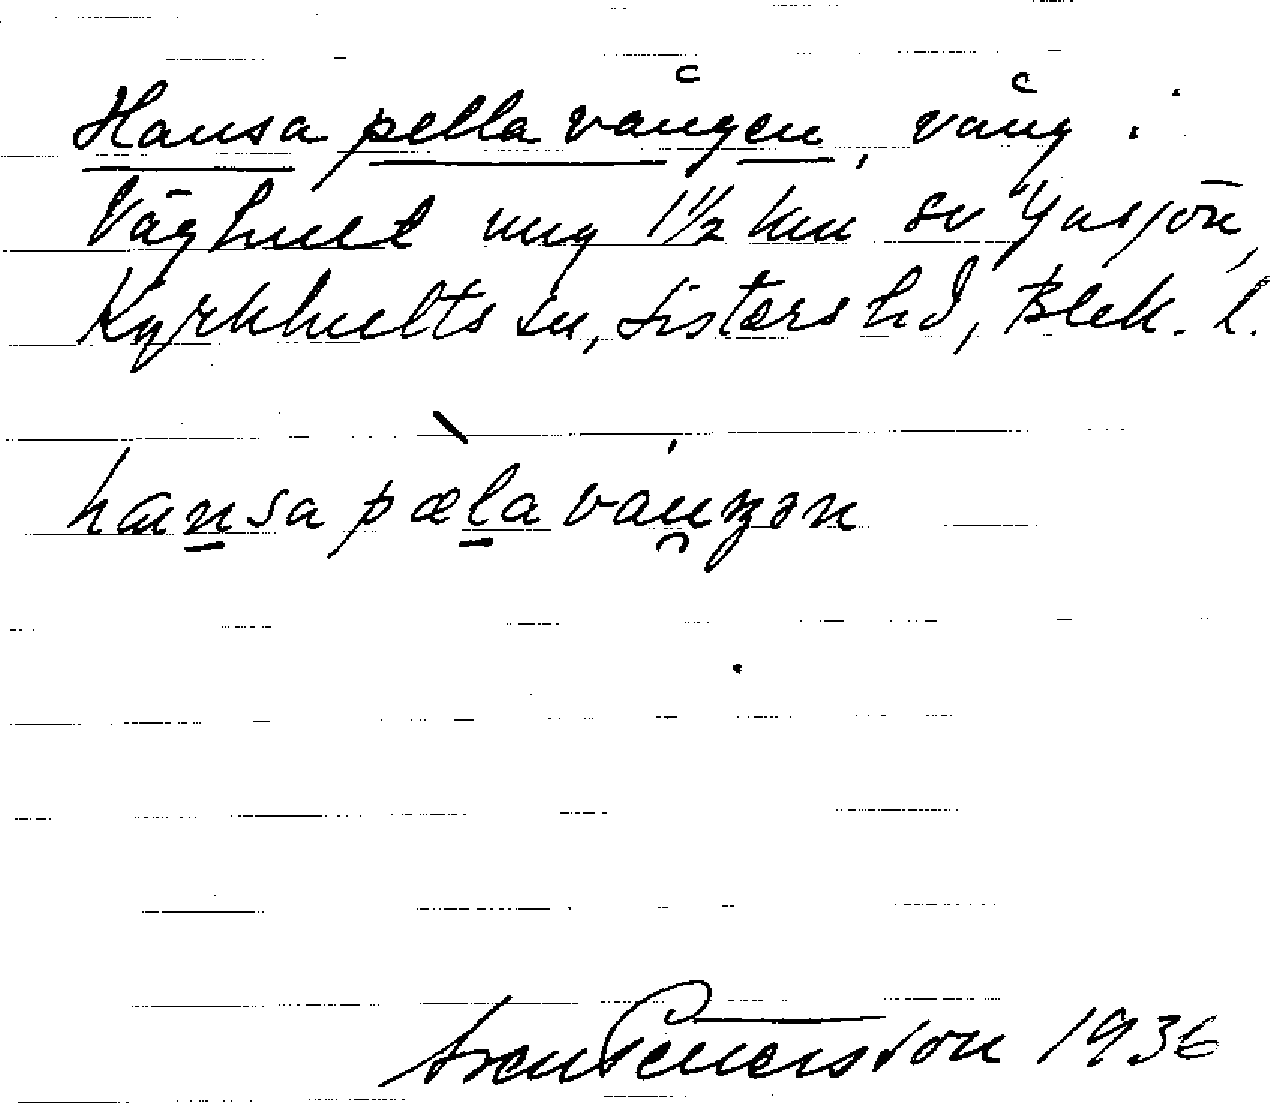 Hansa pella vången, vång i
Våghult ung 1½ km sv Yasjön,
Kyrkhults sn, Listers hd, Blek. l.
hansa pæla våŋən
1936